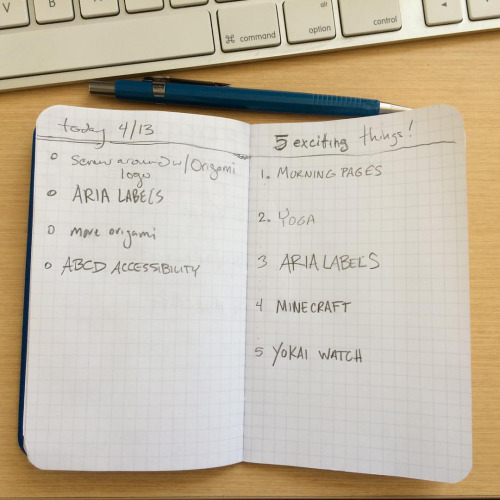 V
B
⌘ command
alt
option
control
today 4/13
o screw around w/ Origami
logo
o ARIA LABELS
o more origami
o ABCD ACCESSIBILITY
5 exciting things!
1. MORNING PAGES
2. YOGA
3 ARIA LABELS
4 MINECRAFT
5 YOKAI WATCH